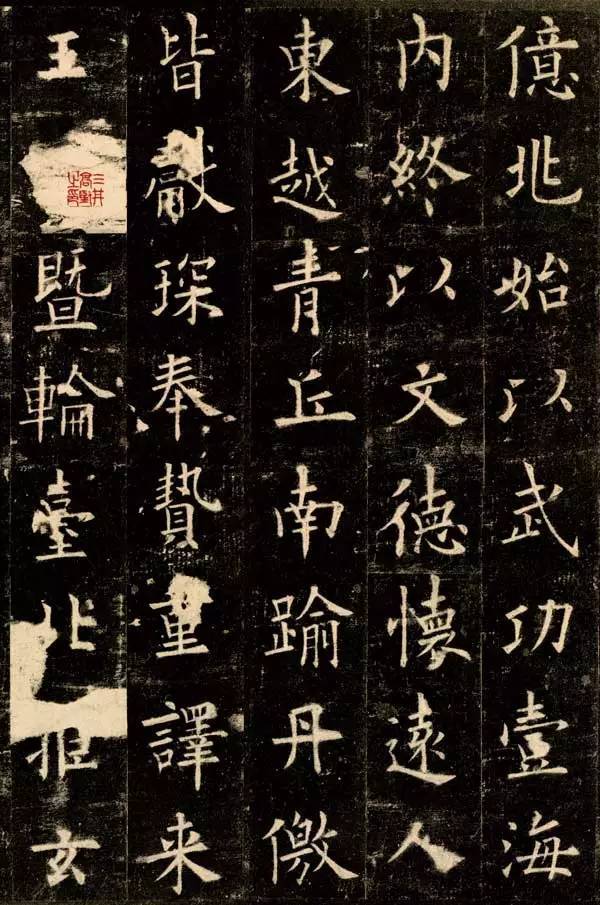 億兆始以武功壹海
内終以文德懷遠人
東越青丘南踰丹儌
皆獻琛奉贄重譯来
王暨輪臺北拒玄
三井高堅之印